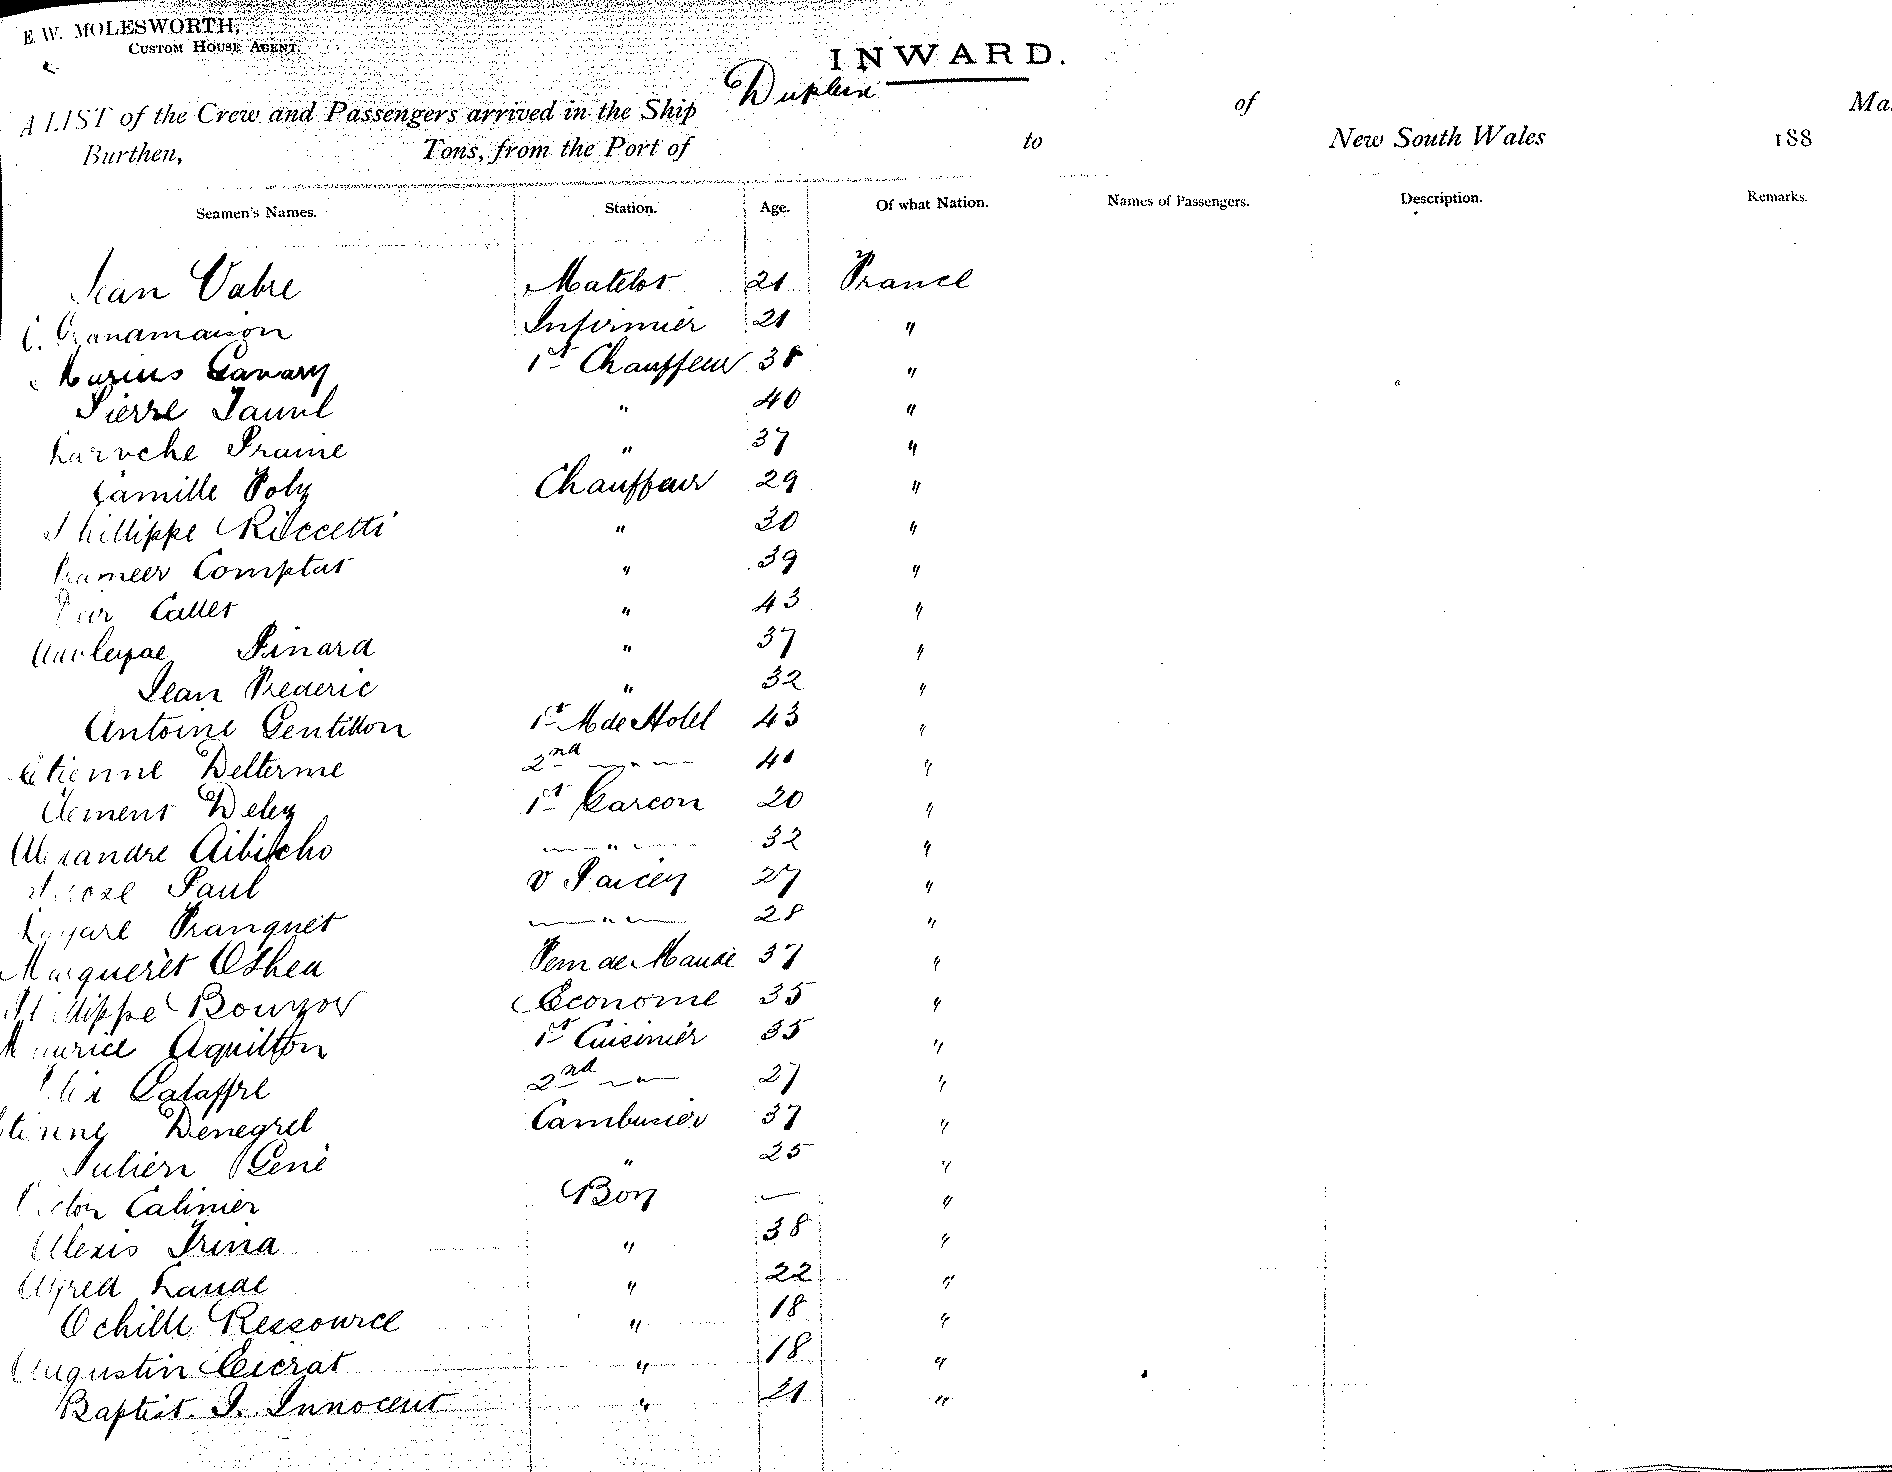 E. W. MOLESWORTH,
CUSTOM HOUSE AGENT.
INWARD.
A LIST of the Crew and Passengers arrived in the Ship Dupleix of Ma
Burthen, Tons, from the Port of to New South Wales 188
Seamen's Names. Station. Age. Of what Nation. Names of Passengers. Description. Remarks.
Jean Vabre Matelot 21 France
Infirmier 21 "
Marius Ganary 1st Chauffeur 38 "
Pierre " 40 "
Laroche " 37 "
Camille Poly Chauffeur 29 "
Phillippe Riccetti " 30 "
Comptat " 39 "
Callet " 43 "
Pinard " 37 "
Jean Frederic " 32 "
Antoine Gentillon 1st M de Hotel 43 "
Etienne Delterme 2nd " 40 "
Clement Deley 1st Garcon 20 "
Alexandre " 32 "
Paul 27 "
Franquet " 28 "
Marguerèt OShea 37 "
Phillippe Econome 35 "
Maurice Aquillon 1st Cuisinier 35 "
2nd " 27 "
Etienne Denegrel Cambusier 37 "
Julien Gené " 25 "
Victor Calinier Boy — "
Alexis Trina " 38 "
Alfred Laude " 22 "
Achille Ressource " 18 "
Augustin " 18 "
Baptist. I. Innocent " 21 "